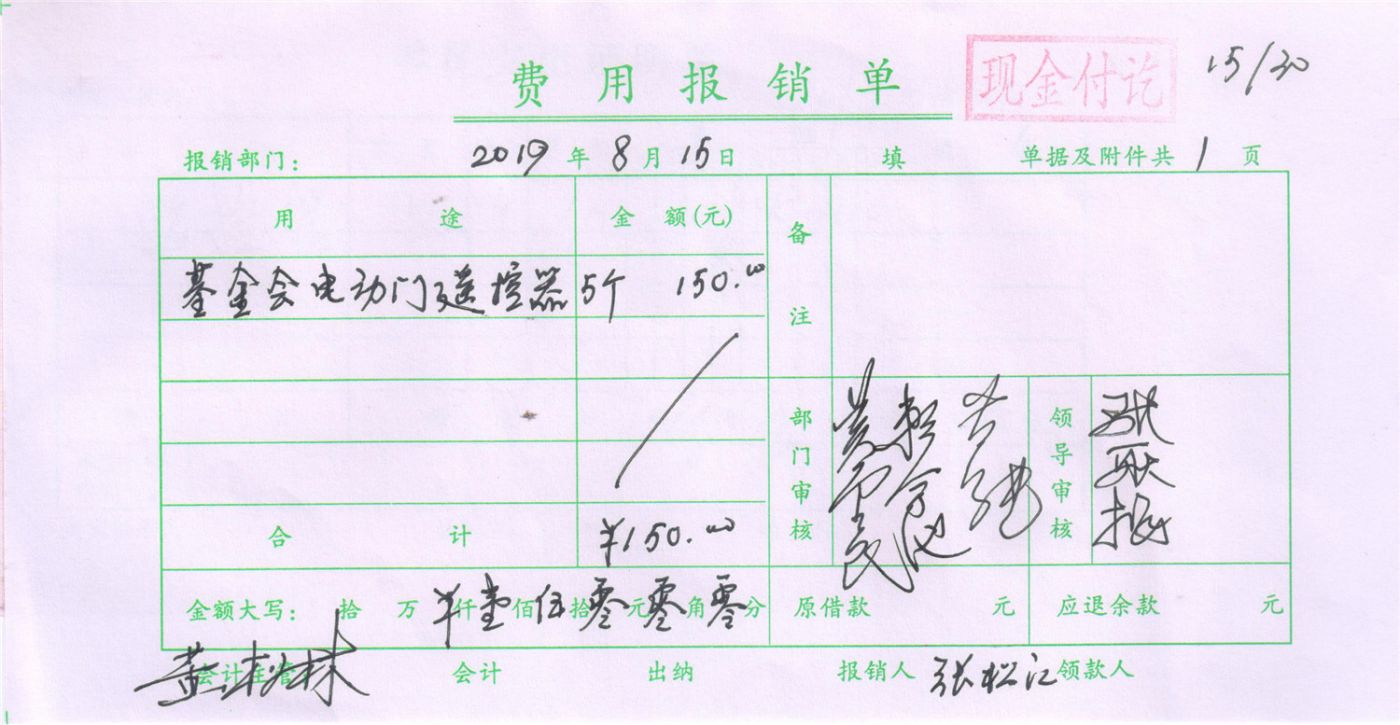 费用报销单 现金付讫 15/30
报销部门： 2019年8月15日 填 单据及附件共1页
用途 金额(元) 备注
基金会电动门遥控器5个 150.00
部门审核 领导审核
合计 ¥150.00
金额大写： 拾 万 ¥仟壹佰伍拾零元零角零分 原借款 元 应退余款 元
会计主管 会计 出纳 报销人 张松江 领款人